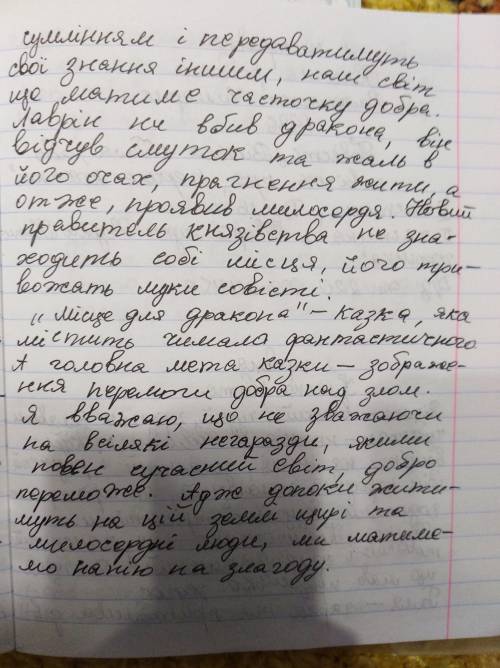 сумлінням і передаватимуть
свої знання іншим, наш світ
ще матиме часточку добра.
Лаврін не вбив дракона, він
відчув смуток та жаль в
його очах, прагнення жити, а
отже, проявив милосердя. Новий
правитель князівства не зна-
ходить собі місця, його три-
вожать муки совісті.
„Місце для дракона" - казка, яка
містить чимало фантастичного
А головна мета казки - зображе-
ння перемоги добра над злом.
Я вважаю, що не зважаючи
на всілякі негаразди, якими
повен сучасний світ, добро
переможе. Адже допоки жити-
муть на цій землі щирі та
милосердні люди, ми матиме-
мо надію на злагоду.